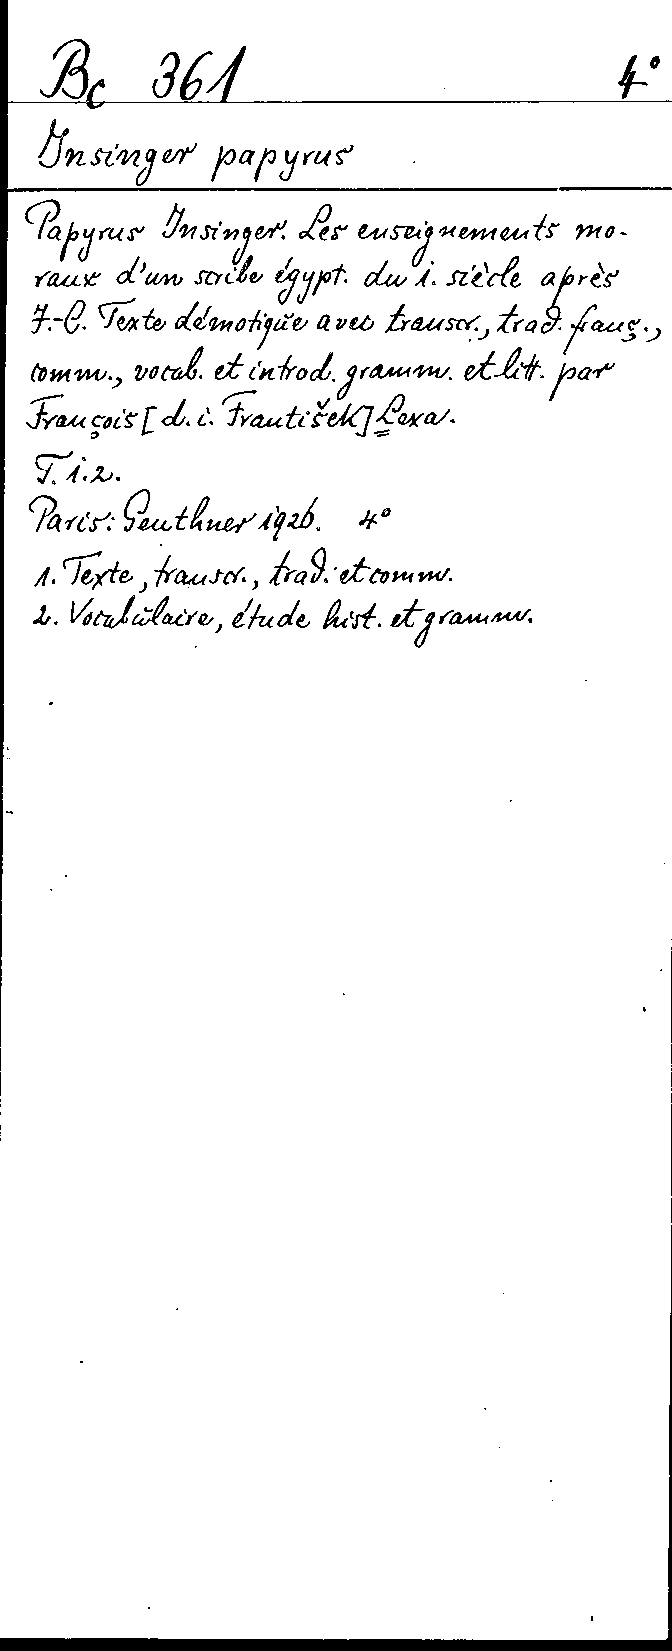 Bc 361 4°
Insinger papyrus
Papyrus Insinger. Les enseignements mo-
raux d'un scribe égypt. du 1. siècle après
J.-C. Texte démotique avec transcr., trad. franç.,
comm., vocab. et introd. gramm. et litt. par
François [d. i. František] Lexa.
T. 1.2.
Paris: Geuthner 1926. 4°
1. Texte, transcr., trad. et comm.
2. Vocabulaire, étude hist. et gramm.